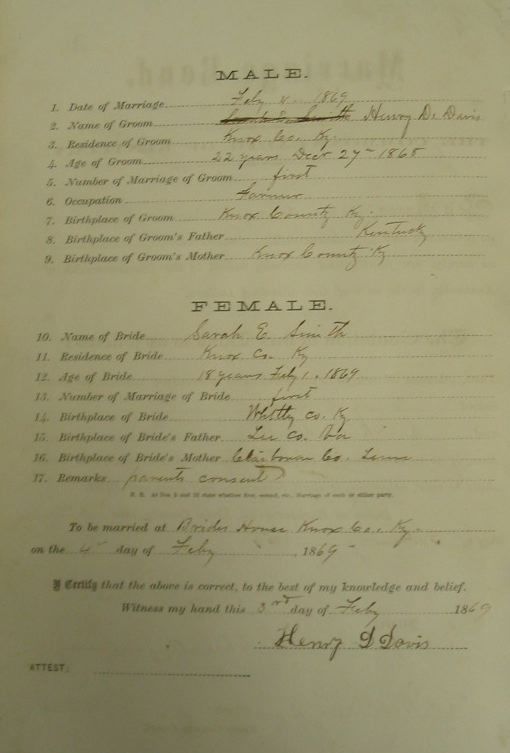 MALE.
1. Date of Marriage Feby 4 1869
2. Name of Groom Henry D. Davis
3. Residence of Groom Knox Co. Ky.
4. Age of Groom 22 years Decr 27 1868
5. Number of Marriage of Groom first
6. Occupation Farmer
7. Birthplace of Groom Knox County Ky.
8. Birthplace of Groom's Father Kentucky
9. Birthplace of Groom's Mother Knox County Ky
FEMALE.
10. Name of Bride Sarah E. Smith
11. Residence of Bride Knox Co. Ky
12. Age of Bride 18 years Feby 1. 1869
13. Number of Marriage of Bride first
14. Birthplace of Bride Whitly Co. Ky
15. Birthplace of Bride's Father Lee Co. Va
16. Birthplace of Bride's Mother Co. Tenn
17. Remarks parents consent
N. B. At Nos. 5 and 13 state whether first, second, etc., Marriage of each or either party.
To be married at Brides House Knox Co., Ky.
on the 4 day of Feby , 1869
I Certify that the above is correct, to the best of my knowledge and belief.
Witness my hand this 3rd day of Feby 1869
Henry D Davis
ATTEST: